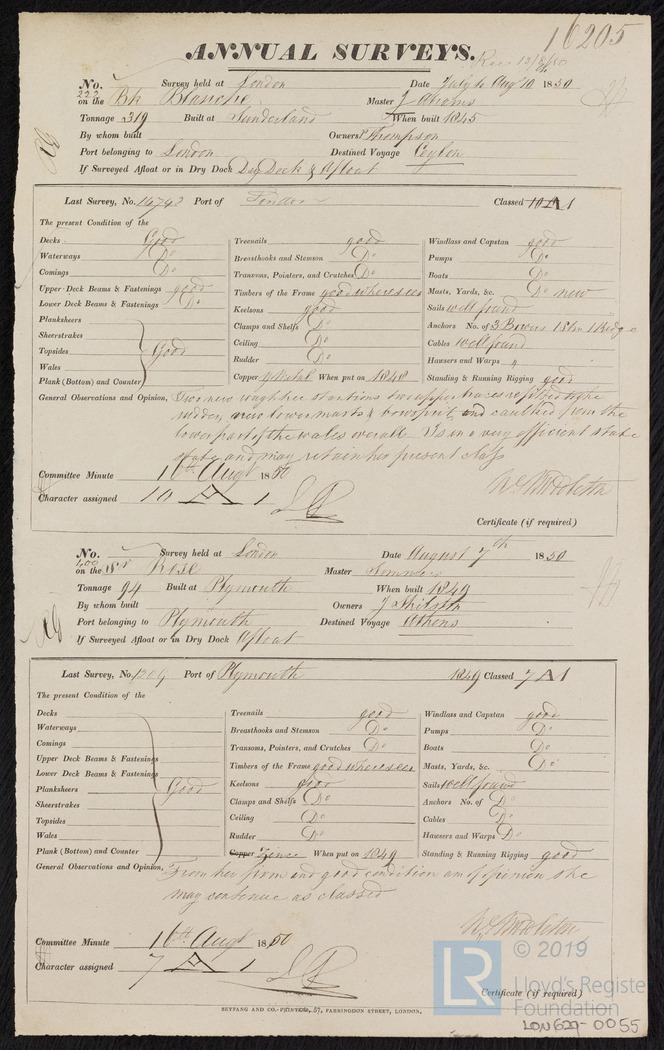 16205
ANNUAL SURVEYS.
No. 222 Survey held at London Date July to Augt 10 1850
on the Bk Blanche Master J Abrams
Tonnage 319 Built at Sunderland When built 1845
By whom built Owners Thompson
Port belonging to London Destined Voyage Ceylon
If Surveyed Afloat or in Dry Dock Dry Dock & Afloat
Last Survey, No. 14793 Port of London Classed 10 A 1
The present Condition of the
Decks Good
Waterways Do
Comings Do
Upper Deck Beams & Fastenings good
Lower Deck Beams & Fastenings Do
Planksheers
Sheerstrakes
Topsides Good
Wales
Plank (Bottom) and Counter
Treenails good
Breasthooks and Stemson Do
Transoms, Pointers, and Crutches Do
Timbers of the Frame good where seen
Keelsons good
Clamps and Shelfs Do
Ceiling Do
Rudder Do
Copper y Metal When put on 1848
Windlass and Capstan good
Pumps Do
Boats Do
Masts, Yards, &c. Do new
Sails well found
Anchors No. of 3 Bowers 1 Stm 1 Kedge
Cables well found
Hawsers and Warps "
Standing & Running Rigging good
General Observations and Opinion, Two new waughtree stantions two upper braces refitted to the
rudder, new lower masts & bowsprit and caulked from the
lower part of the wales overall. Is in a very efficient state
state and may retain her present class
Committee Minute 16th Augt 1850
Character assigned 10 A 1
Certificate (if required)
No. 400 Survey held at London Date August 7th 1850
on the Sr Rose Master
Tonnage 94 Built at Plymouth When built 1849
By whom built Owners J Shilston
Port belonging to Plymouth Destined Voyage Athens
If Surveyed Afloat or in Dry Dock Afloat
Last Survey, No. 1209 Port of Plymouth 1849 Classed 7 A 1
The present Condition of the
Decks
Waterways
Comings
Upper Deck Beams & Fastenings
Lower Deck Beams & Fastenings
Planksheers Good
Sheerstrakes
Topsides
Wales
Plank (Bottom) and Counter
Treenails good
Breasthooks and Stemson Do
Transoms, Pointers, and Crutches Do
Timbers of the Frame good where seen
Keelsons good
Clamps and Shelfs Do
Ceiling Do
Rudder Do
Copper Zinc When put on 1849
Windlass and Capstan good
Pumps Do
Boats Do
Masts, Yards, &c. Do
Sails well found
Anchors No. of Do
Cables Do
Hawsers and Warps Do
Standing & Running Rigging good
General Observations and Opinion, From her firm and good condition am of opinion she
may continue as classed
Committee Minute 16th Augt 1850
Character assigned 7 A 1
Certificate (if required)
SEYFANG AND CO.-PRINTERS, 57, FARRINGDON STREET, LONDON.
LR © 2019
Lloyd's Register
Foundation
LON629-0055